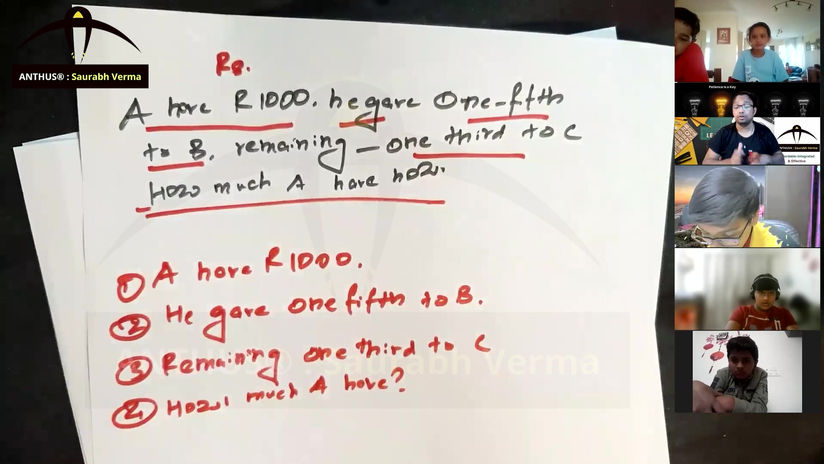 ANTHUS® : Saurabh Verma
Rs.
A have R 1000. he gave One-fifth
to B. remaining - one third to C
How much A have now.
① A have R 1000.
② He gave one fifth to B.
③ Remaining one third to C
④ How much A have?
ANTHUS® : Saurabh Verma
Patience is a Key
ANTHUS® : Saurabh Verma
& Effective